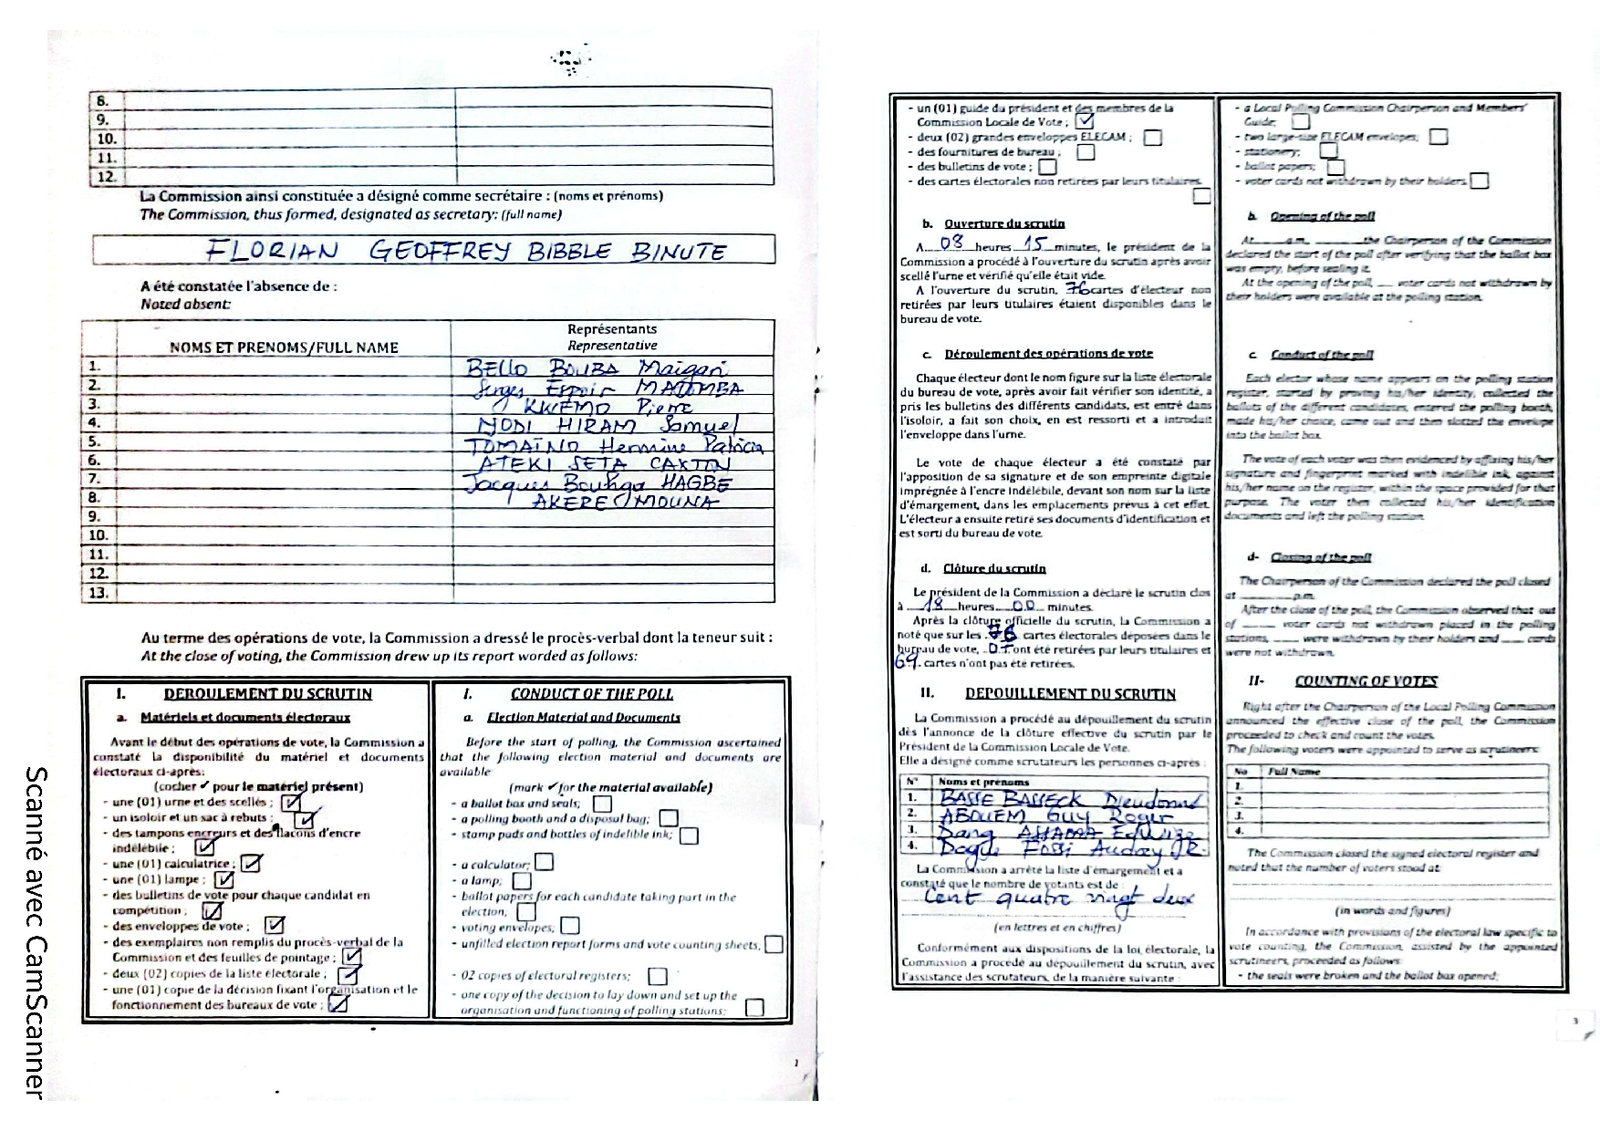 8.
9.
10.
11.
12.
La Commission ainsi constituée a désigné comme secrétaire : (noms et prénoms)
The Commission, thus formed, designated as secretary: (full name)
FLORIAN GEOFFREY BIBBLE BINUTE
A été constatée l'absence de :
Noted absent:
NOMS ET PRENOMS/FULL NAME
Représentants
Representative
1. BELLO BOUBA Maigari
2. Serges Espoir MATOMBA
3. KWEMO Pierre
4. NJODI HIRAM Samuel
5. TOMAÏNO Hermine Patricia
6. ATEKI SETA CAXTON
7. Jacques Bouhga HAGBE
8. AKERE MOUNA
9.
10.
11.
12.
13.
Au terme des opérations de vote, la Commission a dressé le procès-verbal dont la teneur suit :
At the close of voting, the Commission drew up its report worded as follows:
I. DEROULEMENT DU SCRUTIN
a. Matériels et documents électoraux
Avant le début des opérations de vote, la Commission a
constaté la disponibilité du matériel et documents
électoraux ci-après:
(cocher ✓ pour le matériel présent)
- une (01) urne et des scellés ; ☑
- un isoloir et un sac à rebuts ; ☑
- des tampons encreurs et des flacons d'encre
indélébile ; ☑
- une (01) calculatrice ; ☑
- une (01) lampe ; ☑
- des bulletins de vote pour chaque candidat en
compétition ; ☑
- des enveloppes de vote ; ☑
- des exemplaires non remplis du procès-verbal de la
Commission et des feuilles de pointage ; ☑
- deux (02) copies de la liste électorale ; ☑
- une (01) copie de la décision fixant l'organisation et le
fonctionnement des bureaux de vote ; ☑
I. CONDUCT OF THE POLL
a. Election Material and Documents
Before the start of polling, the Commission ascertained
that the following election material and documents are
available
(mark ✓ for the material available)
- a ballot box and seals; ☐
- a polling booth and a disposal bag; ☐
- stamp pads and bottles of indelible ink; ☐
- a calculator; ☐
- a lamp; ☐
- ballot papers for each candidate taking part in the
election; ☐
- voting envelopes; ☐
- unfilled election report forms and vote counting sheets; ☐
- 02 copies of electoral registers; ☐
- one copy of the decision to lay down and set up the
organisation and functioning of polling stations; ☐
2
Scanné avec CamScanner
- un (01) guide du président et des membres de la
Commission Locale de Vote ; ☑
- deux (02) grandes enveloppes ELECAM ; ☐
- des fournitures de bureau ; ☐
- des bulletins de vote ; ☐
- des cartes électorales non retirées par leurs titulaires.
☐
b. Ouverture du scrutin
A 08 heures 15 minutes, le président de la
Commission a procédé à l'ouverture du scrutin après avoir
scellé l'urne et vérifié qu'elle était vide.
A l'ouverture du scrutin, 76 cartes d'électeur non
retirées par leurs titulaires étaient disponibles dans le
bureau de vote.
c. Déroulement des opérations de vote
Chaque électeur dont le nom figure sur la liste électorale
du bureau de vote, après avoir fait vérifier son identité, a
pris les bulletins des différents candidats, est entré dans
l'isoloir, a fait son choix, en est ressorti et a introduit
l'enveloppe dans l'urne.
Le vote de chaque électeur a été constaté par
l'apposition de sa signature et de son empreinte digitale
imprégnée à l'encre indélébile, devant son nom sur la liste
d'émargement, dans les emplacements prévus à cet effet.
L'électeur a ensuite retiré ses documents d'identification et
est sorti du bureau de vote.
d. Clôture du scrutin
Le président de la Commission a déclaré le scrutin clos
à 18 heures 00 minutes.
Après la clôture officielle du scrutin, la Commission a
noté que sur les 76 cartes électorales déposées dans le
bureau de vote, 07 ont été retirées par leurs titulaires et
69 cartes n'ont pas été retirées.
II. DEPOUILLEMENT DU SCRUTIN
La Commission a procédé au dépouillement du scrutin
dès l'annonce de la clôture effective du scrutin par le
Président de la Commission Locale de Vote.
Elle a désigné comme scrutateurs les personnes ci-après :
N° Noms et prénoms
1. BASSE BASSECK Dieudonné
2. ABOUEM GUY Roger
3. Dang Edwige
4. Fossi Audrey JR.
La Commission a arrêté la liste d'émargement et a
constaté que le nombre de votants est de :
Cent quatre vingt deux
(en lettres et en chiffres)
Conformément aux dispositions de la loi électorale, la
Commission a procédé au dépouillement du scrutin, avec
l'assistance des scrutateurs, de la manière suivante :
- a Local Polling Commission Chairperson and Members'
Guide; ☐
- two large-size ELECAM envelopes; ☐
- stationery; ☐
- ballot papers; ☐
- voter cards not withdrawn by their holders. ☐
b. Opening of the poll
At______a.m. ______the Chairperson of the Commission
declared the start of the poll after verifying that the ballot box
was empty, before sealing it.
At the opening of the poll, ___ voter cards not withdrawn by
their holders were available at the polling station.
c. Conduct of the poll
Each elector whose name appears on the polling station
register, started by proving his/her identity, collected the
ballots of the different candidates, entered the polling booth,
made his/her choice, came out and then slotted the envelope
into the ballot box.
The vote of each voter was then evidenced by affixing his/her
signature and fingerprint marked with indelible ink, against
his/her name on the register, within the space provided for that
purpose. The voter then collected his/her identification
documents and left the polling station.
d- Closing of the poll
The Chairperson of the Commission declared the poll closed
at __________p.m.
After the close of the poll, the Commission observed that out
of _____ voter cards not withdrawn placed in the polling
stations, ____ were withdrawn by their holders and ____ cards
were not withdrawn.
II- COUNTING OF VOTES
Right after the Chairperson of the Local Polling Commission
announced the effective close of the poll, the Commission
proceeded to check and count the votes.
The following voters were appointed to serve as scrutineers:
No Full Name
1.
2.
3.
4.
The Commission closed the signed electoral register and
noted that the number of voters stood at:
(in words and figures)
In accordance with provisions of the electoral law specific to
vote counting, the Commission, assisted by the appointed
scrutineers, proceeded as follows:
- the seals were broken and the ballot box opened;
3